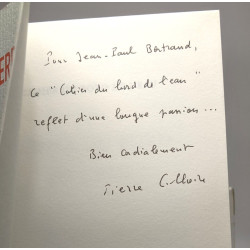 Pour Jean-Paul Bertrand,
ce "Cahier du bord de l'eau"
reflet d'une longue passion...
Bien cordialement
Pierre